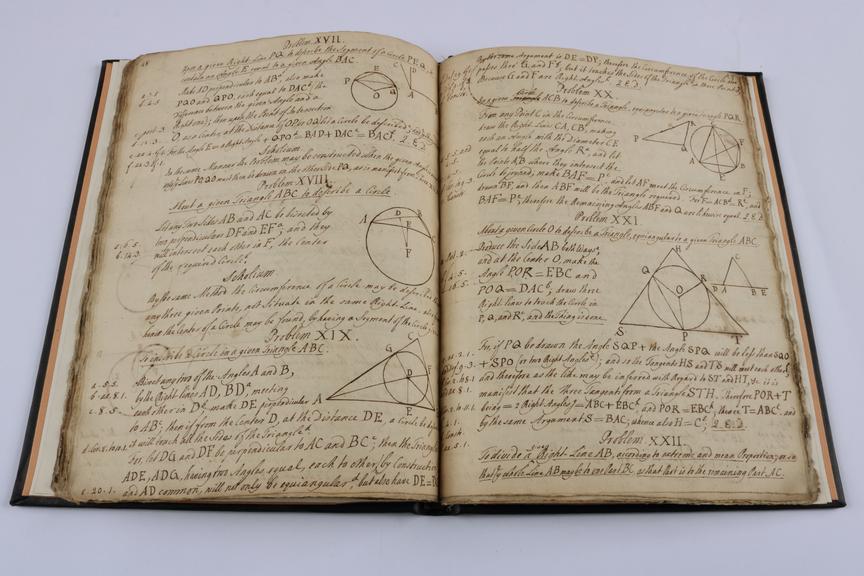 48
Problem XVII.
Upon a given Right Line PQ to describe the Segment of a Circle PEQ,
contain an Angle E equal to a given Angle BAC.
Make AD perpendicular to AB, also make
PQO and QPO, each equal to DAC, the
Difference between the given Angle and a
Right one; then upon the Point of Intersection
O as a Center, at the Distance of OP or OQ let a Circle be described
For the Angle E = a Right Angle + QPO = BAD + DAC = BAC. Q.E.D.
Scholium
In the same Manner the Problem may be constructed when the given Angle
Problem XVIII.
About a given Triangle ABC to describe a Circle.
Let any two Sides AB and AC be bisected by
two perpendiculars DF and EF; and they
will intersect each other in F, the Center
of the required Circle.
Scholium
By the same Method the Circumference of a Circle may be described
any three given Points, not Situate in the same Right Line,
hence the Center of a Circle may be found, by having a Segment of the Circle
Problem XIX.
To inscribe a Circle in a given Triangle ABC.
Bisect any two of the Angles A and B,
by the Right Lines AD, BD, meeting
each other in D; make DE perpendicular
to AB; then if from the Center D, at the distance DE, a Circle be
it will touch all the Sides of the Triangle
For, let DG and DF be perpendicular to AC and BC; then the Triangles
ADE, ADG, having two Angles equal, each to other, by Construction
and AD common, will not only be equiangular, but also have DE = DG
By the same Argument is DE = DF; therefore the Circumference of the Circle
passes thro' G and F; but it touches the Sides of the Triangle
Because G and F are Right Angles. Q.E.D.
Problem XX
In a given Circle ACB to describe a Triangle, equiangular to a given Triangle PQR
From any Point C in the Circumference
draw the Right Lines CA, CB, making
each an Angle with the Diameter CE
equal to half the Angle R, and let
the Points A,B where they intersect the
Circle be joined; make BAF = P, and let AF meet the Circumference in F;
draw BF, and then ABF will be the Triangle required. For F = ACB = R, and
BAF = P; therefore the Remaining Angles ABF and Q are likewise equal. Q.E.D.
Problem XXI
About a given Circle O to describe a Triangle, equiangular to a given Triangle ABC.
Produce the Side AB both Ways,
and at the Center O, make the
Angle POR = EBC and
POQ = DAC, draw three
Right Lines to touch the Circle in
P, Q, and R, and the Thing is done.
For, if PQ be drawn the Angle SQP + the Angle SPQ will be less than SQO
+ SPO (or two Right Angles); and so the Tangents HS and TS will meet each other,
and therefore as the like may be inferred with Regard to ST and HT, it is
manifest that the Three Tangents form a Triangle STH. Therefore POR + T
being = 2 Right Angles = ABC + EBC and POR = EBC, thence T = ABC, and
by the same Argument S = BAC; whence also H = C. Q.E.D.
Problem XXII.
To divide a given Right Line AB, according to extreme and mean Proportion;
that ye whole Line AB may be to one Part BC, as that Part is to the remaining Part AC.